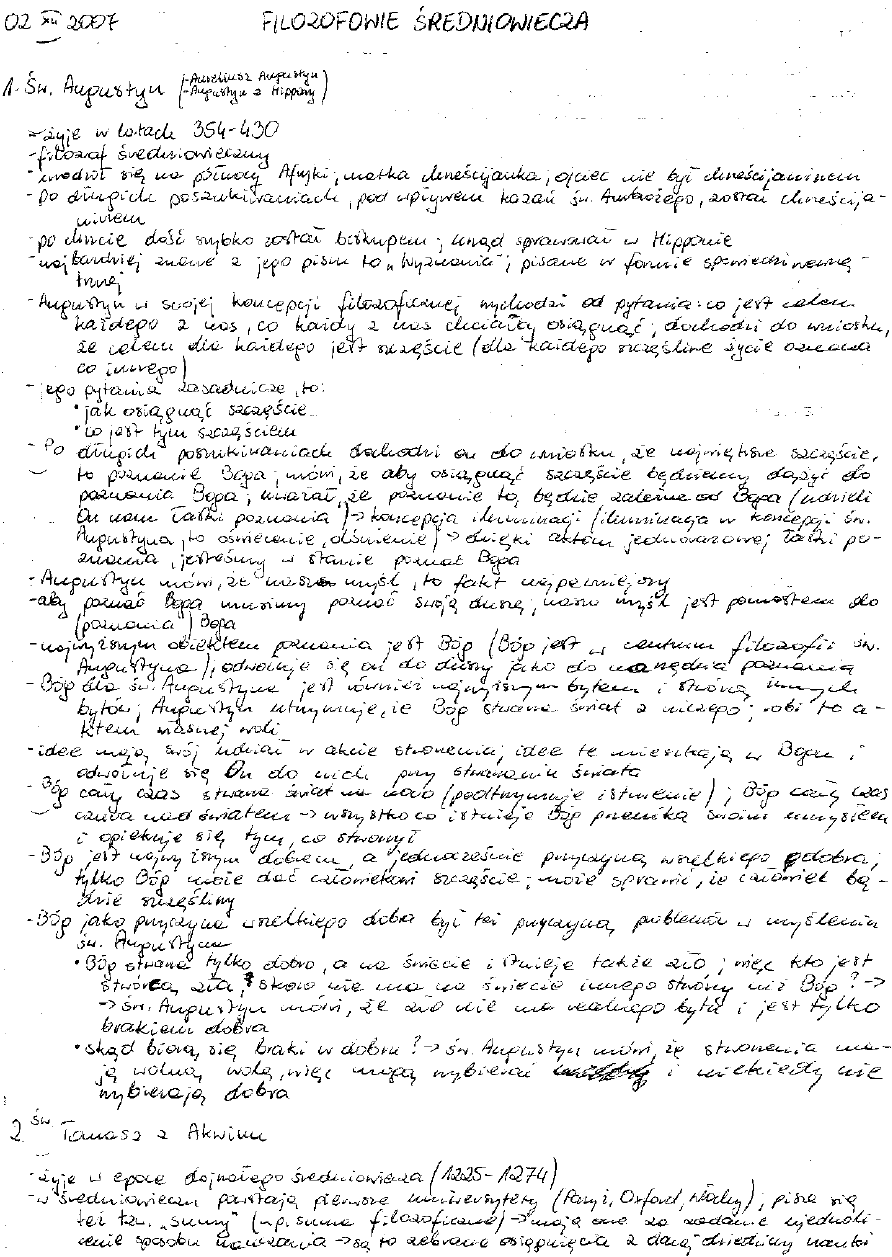 02 XII 2007 FILOZOFOWIE ŚREDNIOWIECZA
1. Św. Augustyn (-Aureliusz Augustyn)
(-Augustyn z Hippony)
-żyje w latach 354-430
-filozof średniowieczny
-urodził się na północy Afryki, matka chrześcijanka; ojciec nie był chrześcijaninem
-po długich poszukiwaniach, pod wpływem kazań św. Ambrożego, został chrześcija-
ninem
-po chrzcie dość szybko został biskupem; urząd sprawował w Hipponie
-najbardziej znane z jego pism to „Wyznania"; pisane w formie spowiedzi wewnę-
trznej
-Augustyn w swojej koncepcji filozoficznej wychodzi od pytania: co jest celem
każdego z nas, co każdy z nas chciałby osiągnąć; dochodzi do wniosku,
że celem dla każdego jest szczęście (dla każdego szczęśliwe życie oznacza
co innego)
-jego pytania zasadnicze, to:
•jak osiągnąć szczęście
•co jest tym szczęściem
-Po długich poszukiwaniach dochodzi on do wniosku, że największe szczęście,
to poznanie Boga; mówi, że aby osiągnąć szczęście będziemy dążyć do
poznania Boga; uważał, że poznanie to, będzie zależne od Boga (udzieli
On nam łaski poznania) → koncepcja iluminacji (iluminacja w koncepcji św.
Augustyna, to oświecenie, olśnienie) → dzięki aktom jednorazowej łaski po-
znania, jesteśmy w stanie poznać Boga
-Augustyn mówi, że nasza myśl, to fakt najpewniejszy
-aby poznać Boga musimy poznać swoją duszę; nasza myśl jest pomostem do
(poznania) Boga
-najwyższym obiektem poznania jest Bóg (Bóg jest w centrum filozofii św.
Augustyna); odwołuje się on do duszy jako do narzędzia poznania
-Bóg dla św. Augustyna jest również najwyższym bytem i stwórcą innych
bytów; Augustyn utrzymuje, że Bóg stwarza świat z niczego; robi to a-
ktem własnej woli
-idee mają swój udział w akcie stworzenia; idee te mieszkają w Bogu i
odwołuje się On do nich przy stwarzaniu świata
-Bóg cały czas stwarza świat na nowo (podtrzymuje istnienie); Bóg cały czas
czuwa nad światem → wszystko co istnieje Bóg przenika swoim umysłem
i opiekuje się tym, co stworzył
-Bóg jest najwyższym dobrem, a jednocześnie przyczyną wszelkiego dobra;
tylko Bóg może dać człowiekowi szczęście; może sprawić, że człowiek bę-
dzie szczęśliwy
-Bóg jako przyczyna wszelkiego dobra był też przyczyną problemów w myśleniu
św. Augustyna
•Bóg stwarza tylko dobro, a na świecie istnieje także zło; więc kto jest
stwórcą zła, skoro nie ma na świecie innego stwórcy niż Bóg? →
→ św. Augustyn mówi, że zło nie ma realnego bytu i jest tylko
brakiem dobra
•skąd biorą się braki w dobru? → św. Augustyn mówi, że stworzenia ma-
ją wolną wolę, więc mogą wybierać i niekiedy nie
wybierają dobra
2. św. Tomasz z Akwinu
-żyje w epoce dojrzałego średniowiecza (1225-1274)
-w średniowieczu powstają pierwsze uniwersytety (Paryż, Oxford, Włochy); pisze się
też tzw. „sumy" (np. suma filozoficzna) → mają one za zadanie ujednoli-
cenie sposobu nauczania → są to zebrane osiągnięcia z danej dziedziny nauki